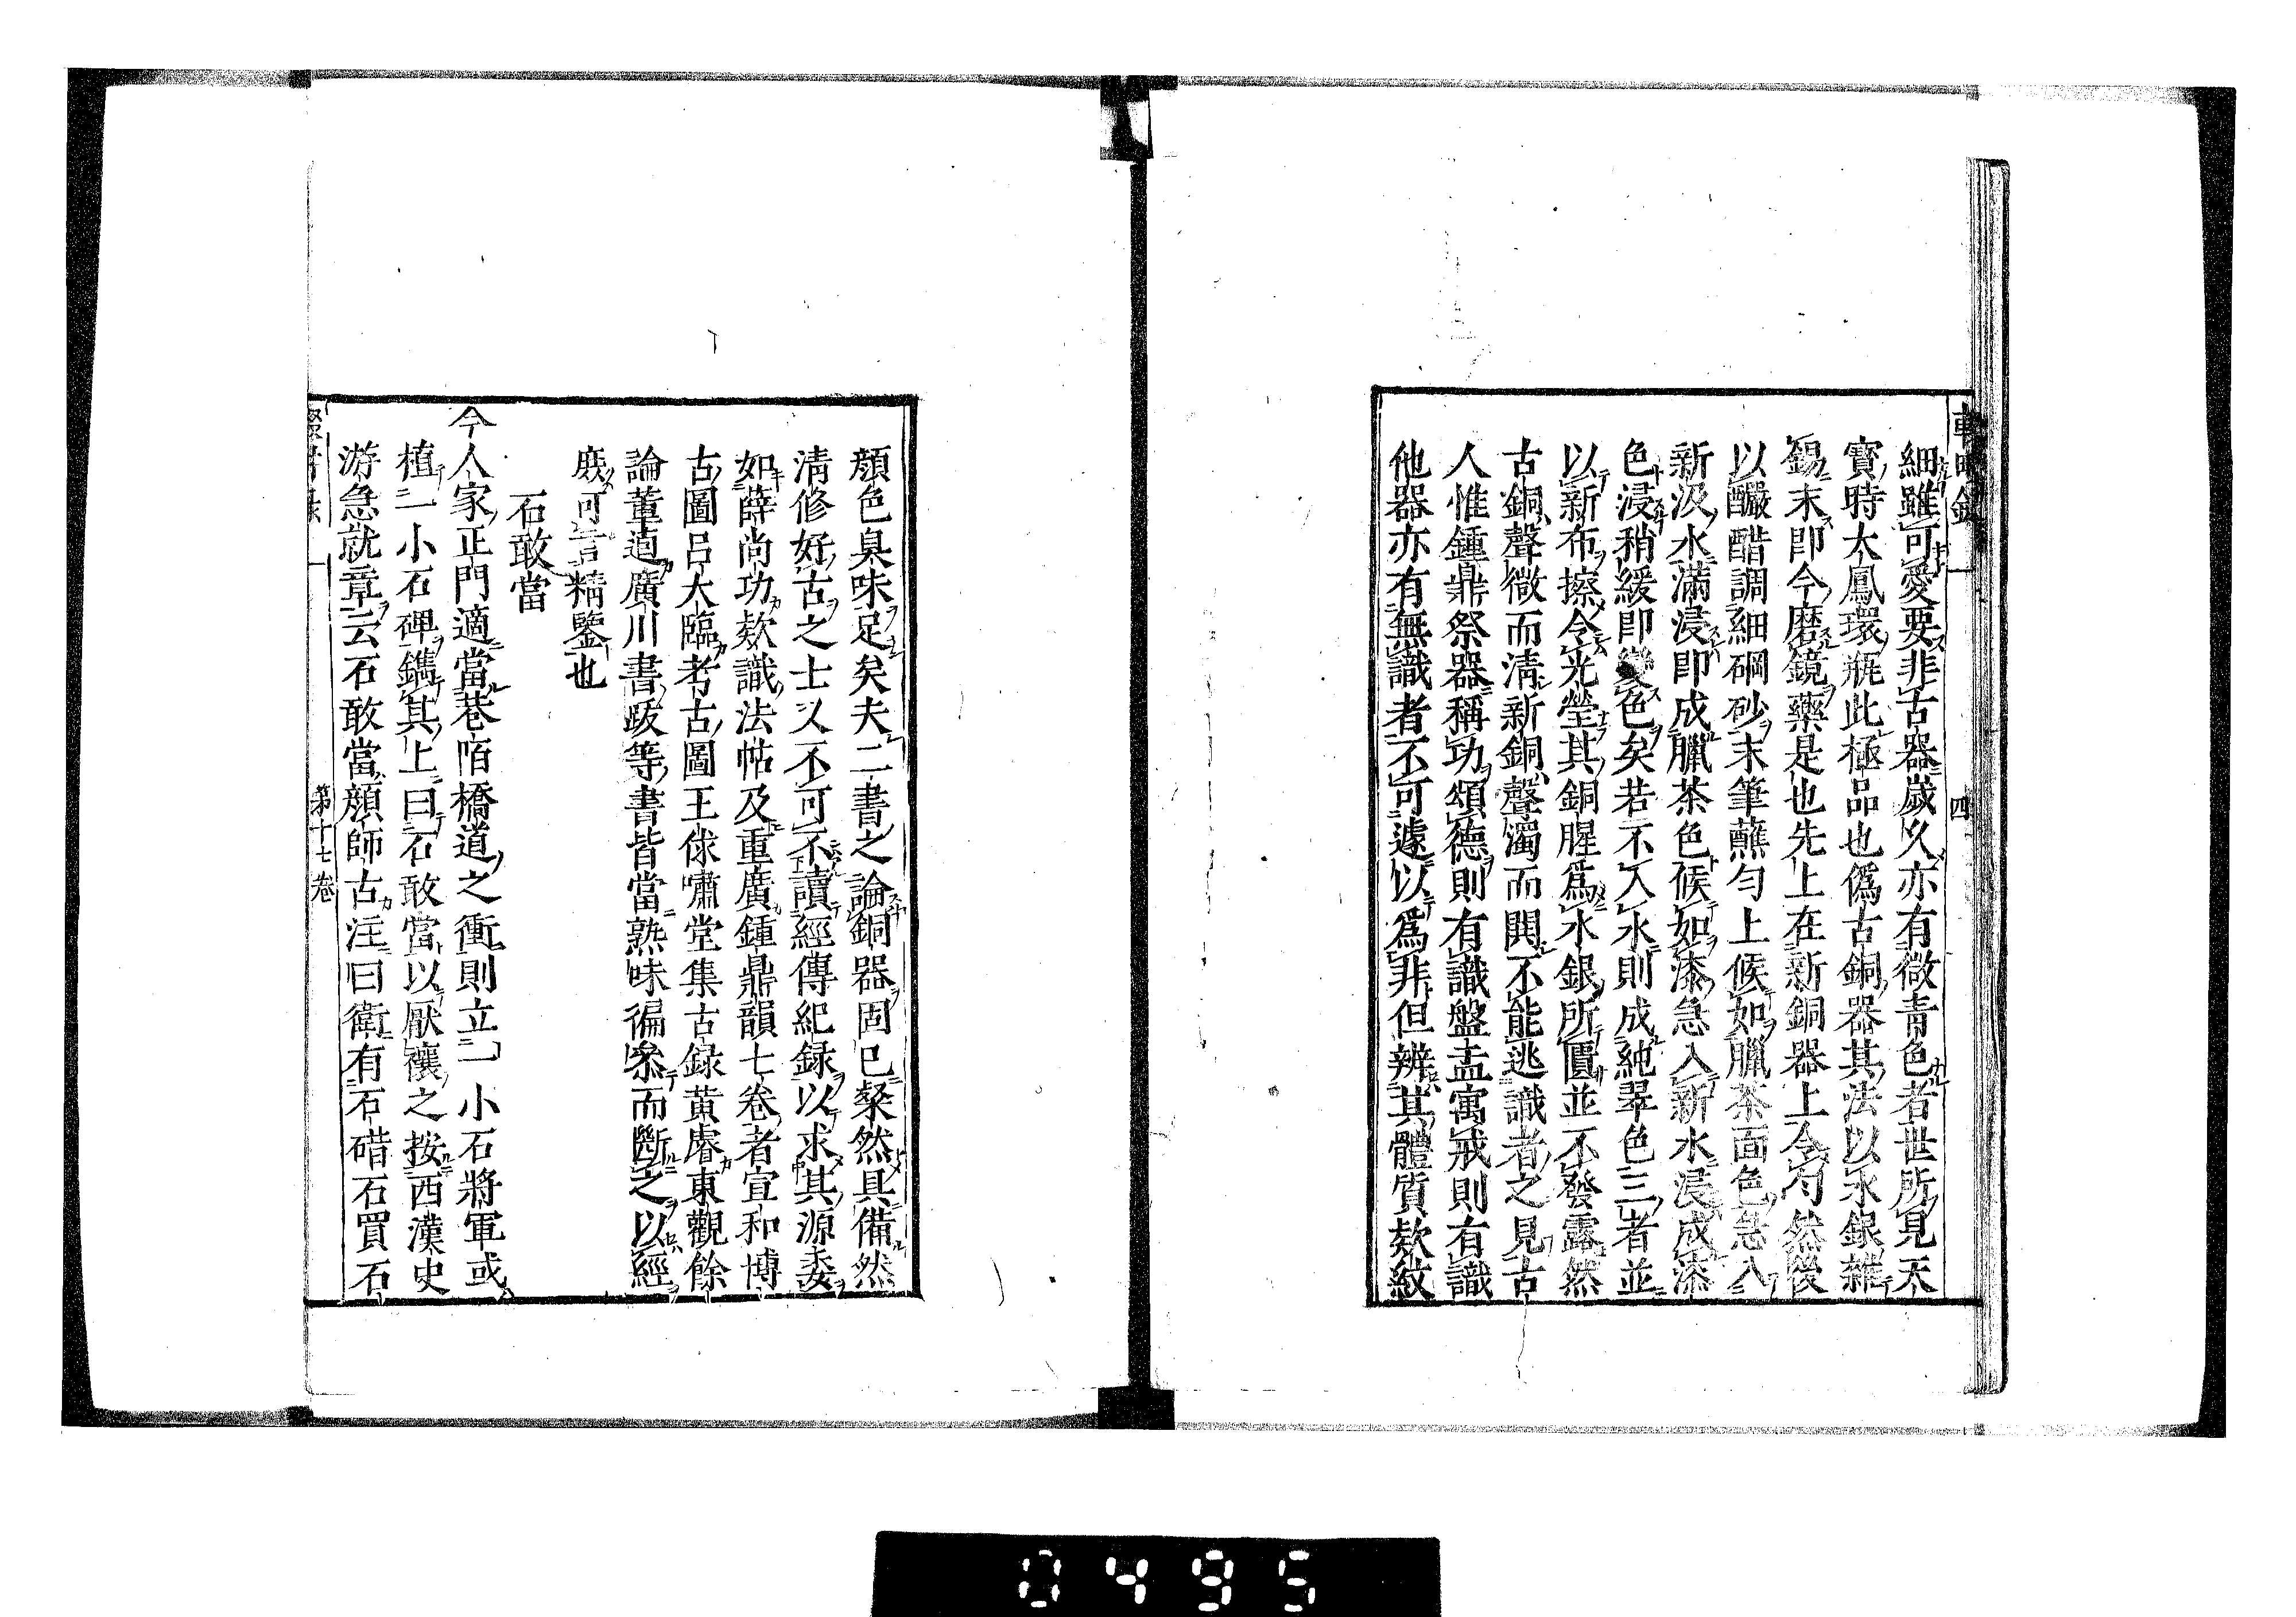 細雖可愛要非古器歲久亦有微青色者世所見天
寶時大鳳環瓶此極品也偽古銅器其法以水銀雜
錫末即今磨鏡藥是也先上在新銅器上令勻然後
以釅醋調細硇砂末筆蘸勻上候如臘茶面色急入
新汲水滿浸即成臘茶色候如漆急入新水浸成漆
色浸稍緩即變色矣若不入水則成純翠色三者並
以新布擦令光瑩其銅腥為水銀所匱並不發露然
古銅聲微而清新銅聲濁而鬨不能逃識者之見古
人惟鍾鼎祭器稱功頌德則有識盤盂寓戒則有識
他器亦有無識者不可遽以為非但辨其體質款紋
四
顏色臭味足矣夫二書之論銅器固已粲然具備然
清修好古之士又不可不讀經傳紀録以求其源委
如薛尚功款識法帖及重廣鍾鼎韻七卷者宣和博
古圖呂大臨考古圖王俅嘯堂集古録黃睿東觀餘
論董逌廣川書跋等書皆當熟味徧參而斷之以經
庶可言精鑒也
石敢當
今人家正門適當巷陌橋道之衝則立一小石將軍或
植一小石碑鐫其上曰石敢當以厭禳之按西漢史
游急就章云石敢當顏師古注曰衛有石碏石買石
第十七卷
0495